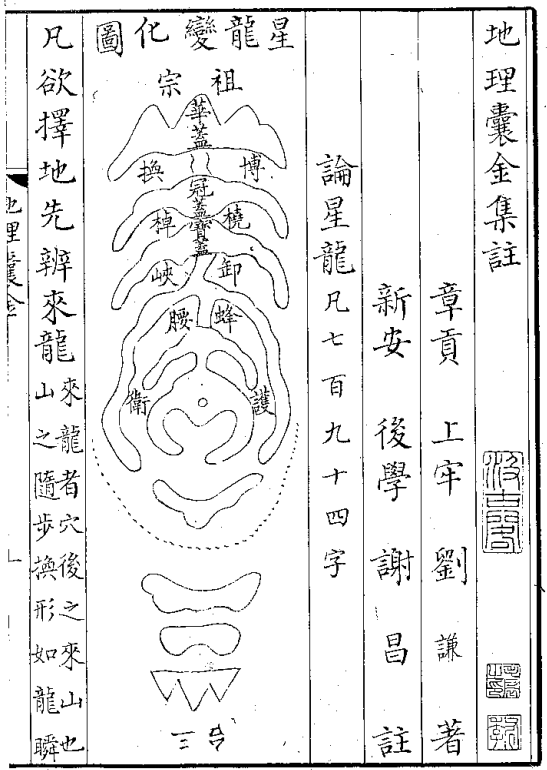 地理囊金集註
章貢 上牢 劉謙 著
新安 後學 謝昌 註
論星龍凡七百九十四字
星龍變化圖
祖宗
華蓋
博換
冠蓋
寶蓋
橈棹
卸峽
蜂腰
護衛
三台
凡欲擇地先辨來龍
來龍者穴後之來山也
山之隨步換形如龍瞬
地理囊金